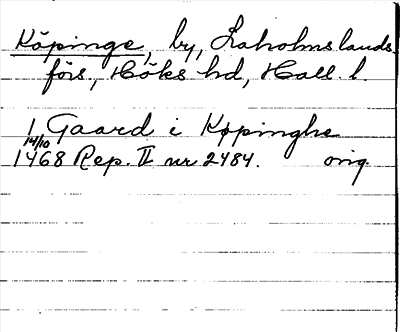 Köpinge, by, Laholms lands-
förs., Höks hd, Hall. l.
1 Gaard i Køpinghe
14/10
1468 Rep. II nr 2484. orig.